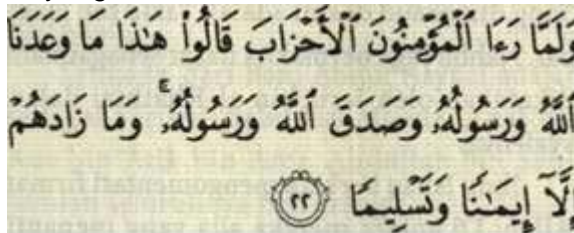 وَلَمَّا رَءَا ٱلْمُؤْمِنُونَ ٱلْأَحْزَابَ قَالُوا۟ هَٰذَا مَا وَعَدَنَا
ٱللَّهُ وَرَسُولُهُۥ وَصَدَقَ ٱللَّهُ وَرَسُولُهُۥ ۚ وَمَا زَادَهُمْ
إِلَّآ إِيمَٰنًا وَتَسْلِيمًا ٢٢